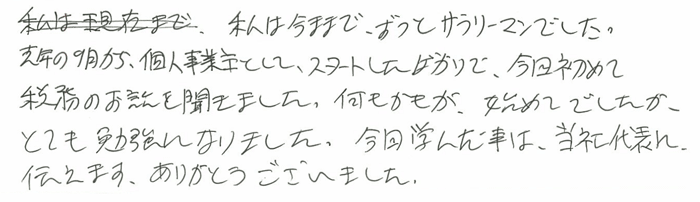 私は現在まで、私は今まで、ずっとサラリーマンでした。
去年の9月から、個人事業主として、スタートしたばかりで、今回初めて
税務のお話を聞きました。何もかもが、始めてでしたが、
とても勉強になりました。今回学んだ事は、当社代表に、
伝えます、ありがとうございました。